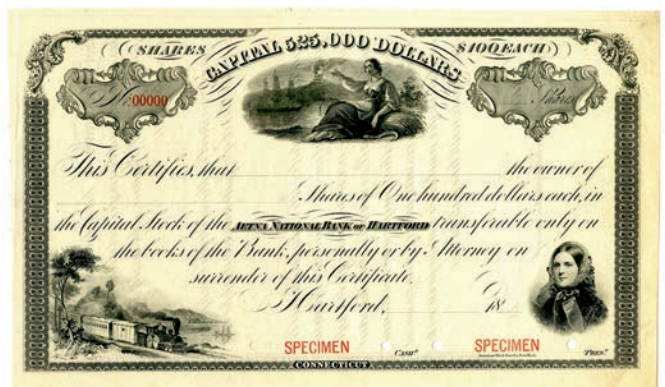 SHARES CAPITAL 525,000 DOLLARS $100 EACH
No. 00000 Shares
This Certifies, that the owner of
Shares of One hundred dollars each, in
the Capital Stock of the AETNA NATIONAL BANK OF HARTFORD transferable only on
the books of the Bank, personally or by Attorney on
surrender of this Certificate.
Hartford, 18
SPECIMEN CASHR. SPECIMEN PREST.
CONNECTICUT